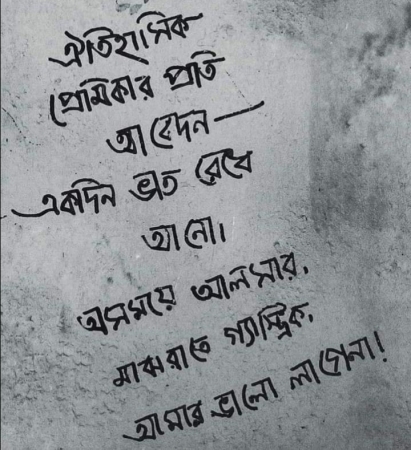 ঐতিহাসিক
প্রেমিকার প্রতি
আবেদন—
একদিন ভাত রেধে
আনো।
অসময়ে আলসার,
মাঝরাতে গ্যাস্ট্রিক,
আমার ভালো লাগেনা!